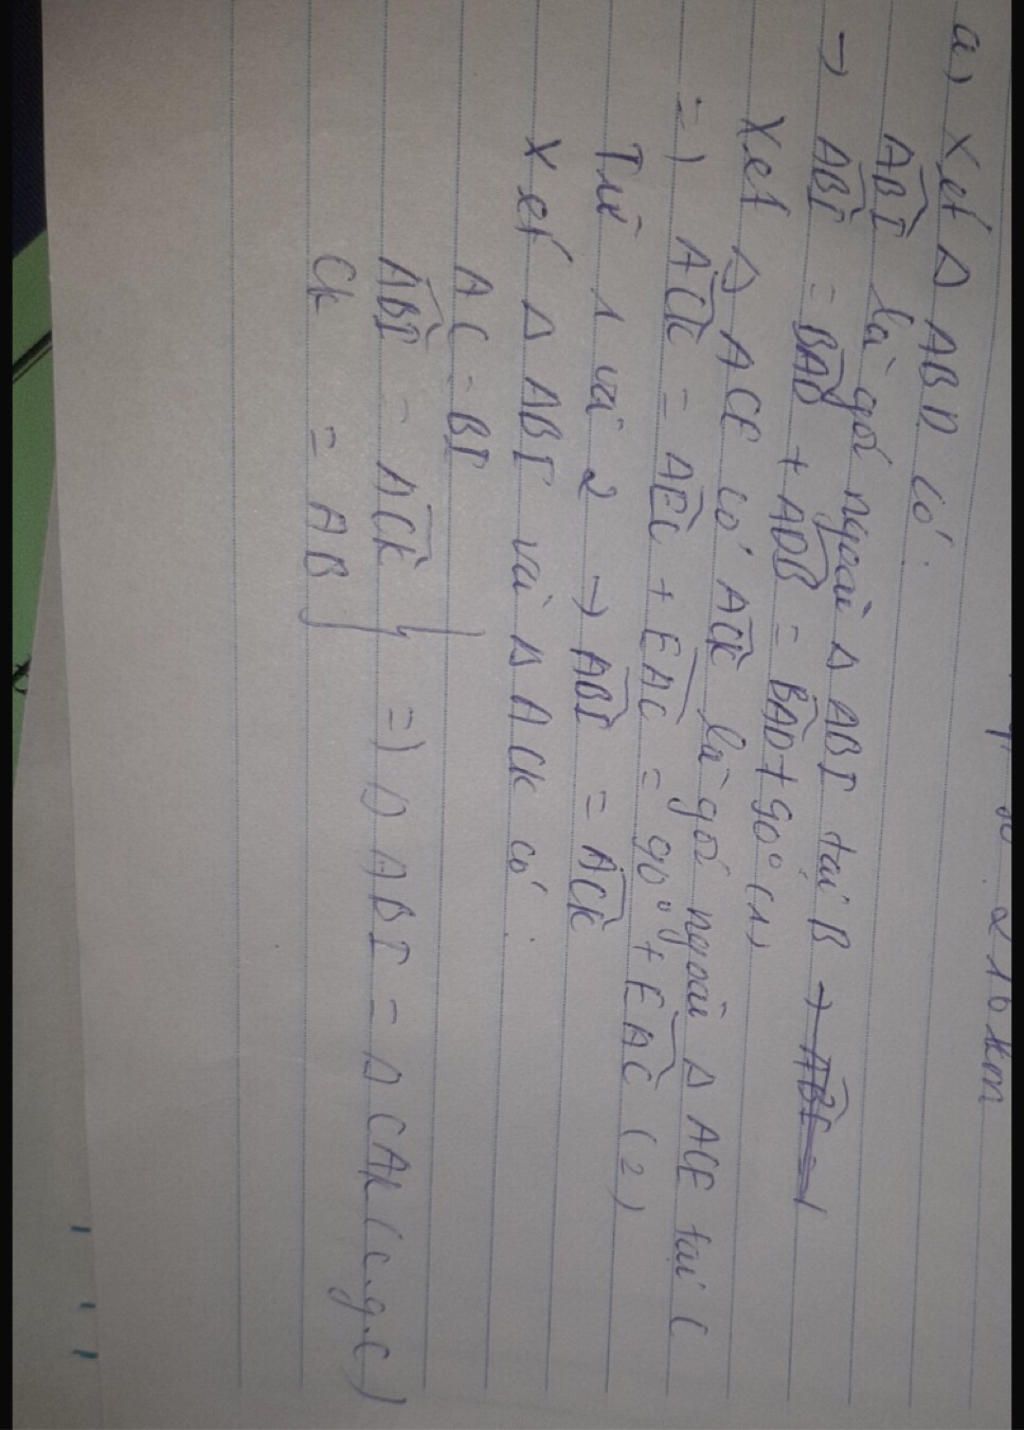 α 16 km
a) Xét Δ ABD có:
ABI là góc ngoài Δ ABI tại B → ABI =
→ ABI = BAD + ADB = BAD + 90° (1)
Xét Δ ACE có ACK là góc ngoài Δ ACE tại C
=) ACK = AEC + EAC = 90° + EAC (2)
Từ 1 và 2 → ABI = ACK
Xét Δ ABI và Δ ACK có:
AC = BI
ABI = ACK } =) Δ ABI = Δ CAK (c.g.c)
CK = AB